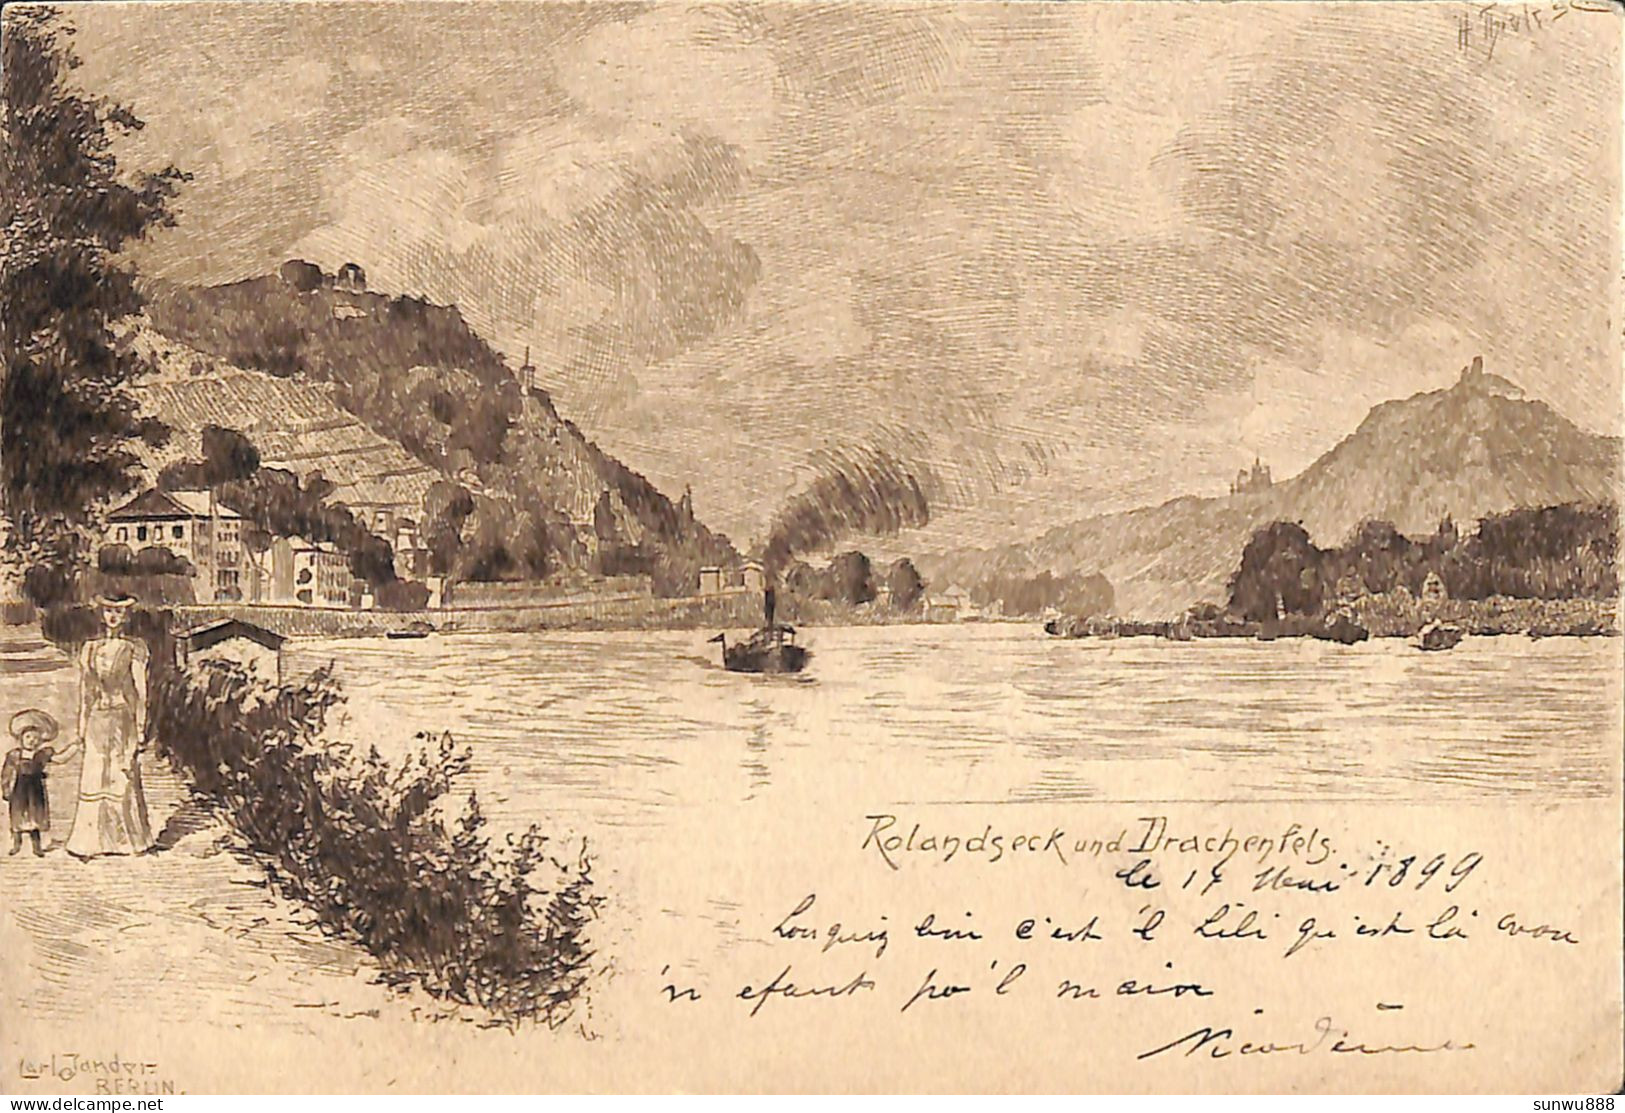 H. Thiele sc
Rolandseck und Drachenfels.
le 14 Mai 1899
Louquiz bin c'est 'l Lili qu'est là avou
'n efant po'l main
Nicodème
Carl Jander
BERLIN.
sunwu888